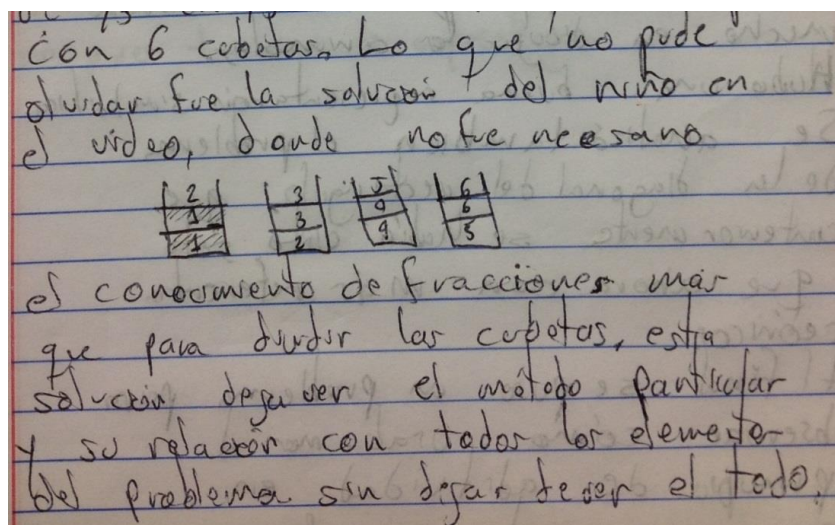 con 6 cubetas. Lo que no pude
olvidar fue la solución del niño en
el video, donde no fue necesario
2 3 5 6
1 3 4 6
1 2 4 5
el conocimiento de fracciones más
que para dividir las cubetas, esta
solución deja ver el método particular
y su relación con todos los elementos
del problema sin dejar de ver el todo.